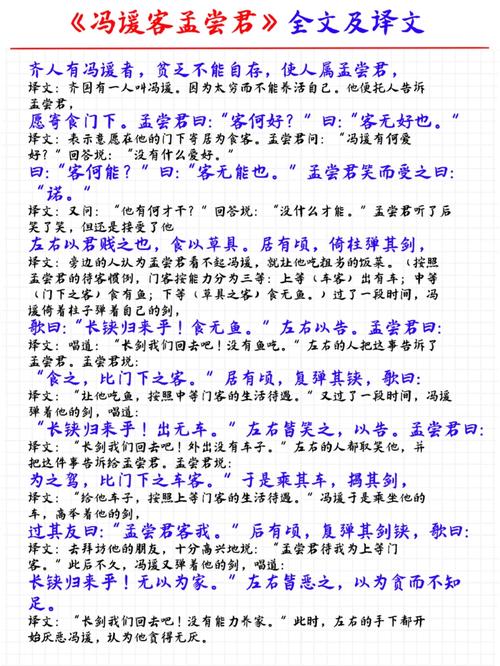 《冯谖客孟尝君》全文及译文
齐人有冯谖者，贫乏不能自存，使人属孟尝君，
译文：齐国有一人叫冯谖。因为太穷而不能养活自己。他便托人告诉
孟尝君，
愿寄食门下。孟尝君曰：“客何好？”曰：“客无好也。”
译文：表示意愿在他的门下寄居为食客。孟尝君问：“冯谖有何爱
好？”回答说：“没有什么爱好。”
曰：“客何能？”曰：“客无能也。”孟尝君笑而受之曰：
“诺。”
译文：又问：“他有何才干？”回答说：“没什么才能。”孟尝君听了后
笑了笑，但还是接受了他
左右以君贱之也，食以草具。居有顷，倚柱弹其剑，
译文：旁边的人认为孟尝君看不起冯谖，就让他吃粗劣的饭菜。（按照
孟尝君的待客惯例，门客按能力分为三等：上等（车客）出有车；中等
（门下之客）食有鱼；下等（草具之客）食无鱼。）过了一段时间，冯
谖倚着柱子弹着自己的剑，
歌曰：“长铗归来乎！食无鱼。”左右以告。孟尝君曰：
译文：唱道：“长剑我们回去吧！没有鱼吃。”左右的人把这事告诉了
孟尝君。孟尝君说：
“食之，比门下之客。”居有顷，复弹其铗，歌曰：
译文：“让他吃鱼，按照中等门客的生活待遇。”又过了一段时间，冯谖
弹着他的剑，唱道：
“长铗归来乎！出无车。”左右皆笑之，以告。孟尝君曰：
译文：“长剑我们回去吧！外出没有车子。”左右的人都取笑他，并
把这件事告诉给孟尝君。孟尝君说：
“为之驾，比门下之车客。”于是乘其车，揭其剑，
译文：“给他车子，按照上等门客的生活待遇。”冯谖于是乘坐他的
车，高举着他的剑，
过其友曰：“孟尝君客我。”后有顷，复弹其剑铗，歌曰：
译文：去拜访他的朋友，十分高兴地说：“孟尝君待我为上等门
客。”此后不久，冯谖又弹着他的剑，唱道：
“长铗归来乎！无以为家。”左右皆恶之，以为贪而不知
足。
译文：“长剑我们回去吧！没有能力养家。”此时，左右的手下都开
始厌恶冯谖，认为他贪得无厌。